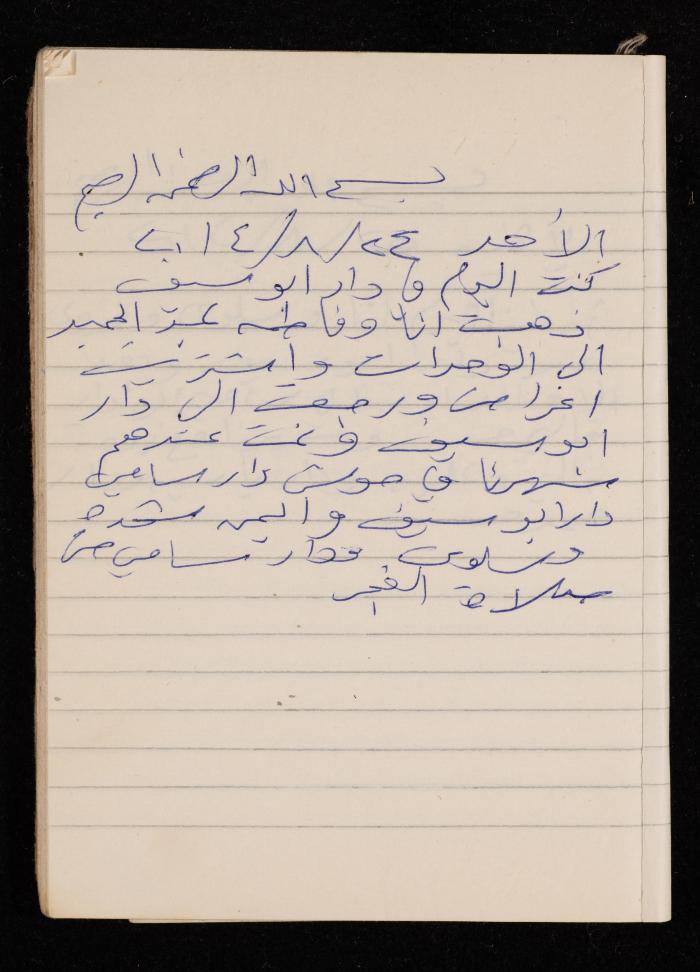 بسم الله الرحمن الرحيم
الأحد ٢٤/٨/١٤ آب
كنت اليوم في دار ابو سيف
ذهبت انا وفاطمه عبد الحميد
الى الوحدات واشتريت
اغراض ورجعت الى دار
ابو سيف ونمت عندهم
سهرنا في حوش دار سامي
دار ابو سيف و
وسلوى ودار سامي حتى
صلاة الفجر